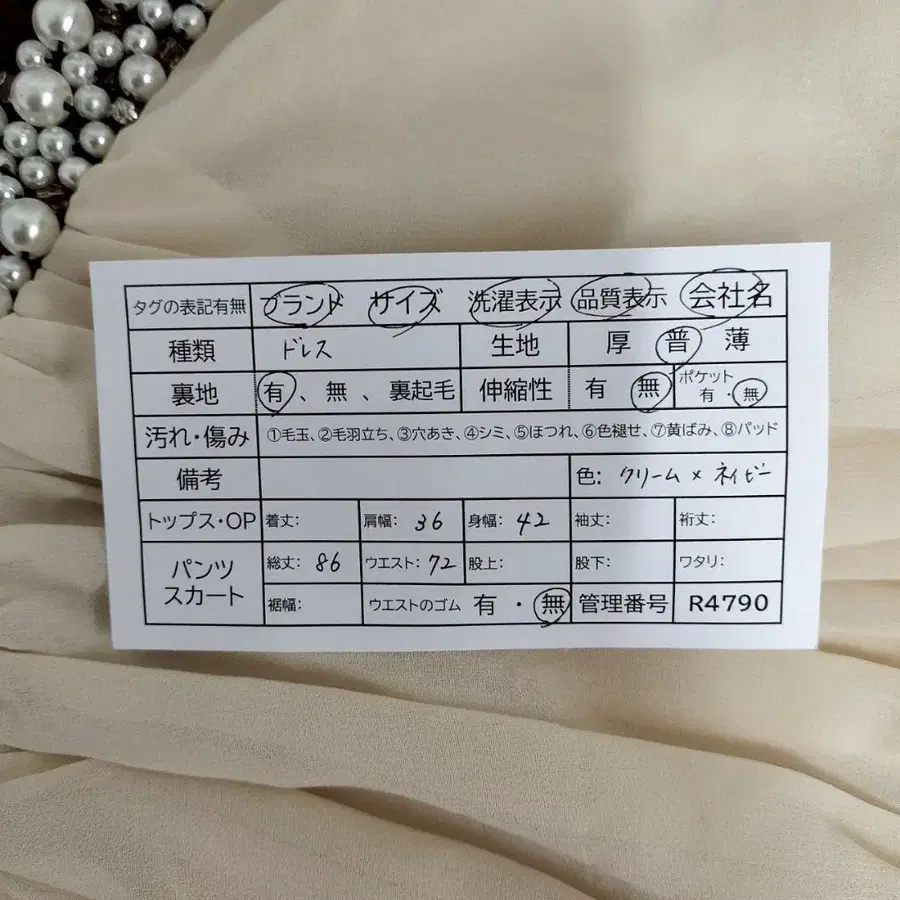 タグの表記有無 ブランド サイズ 洗濯表示 品質表示 会社名
種類 ドレス 生地 厚 普 薄
裏地 有、無、裏起毛 伸縮性 有 無 ポケット 有・無
汚れ・傷み ①毛玉、②毛羽立ち、③穴あき、④シミ、⑤ほつれ、⑥色褪せ、⑦黄ばみ、⑧パッド
備考 色: クリーム × ネイビー
トップス・OP 着丈: 肩幅: 36 身幅: 42 袖丈: 裄丈:
パンツ スカート 総丈: 86 ウエスト: 72 股上: 股下: ワタリ:
裾幅: ウエストのゴム 有・無 管理番号 R4790